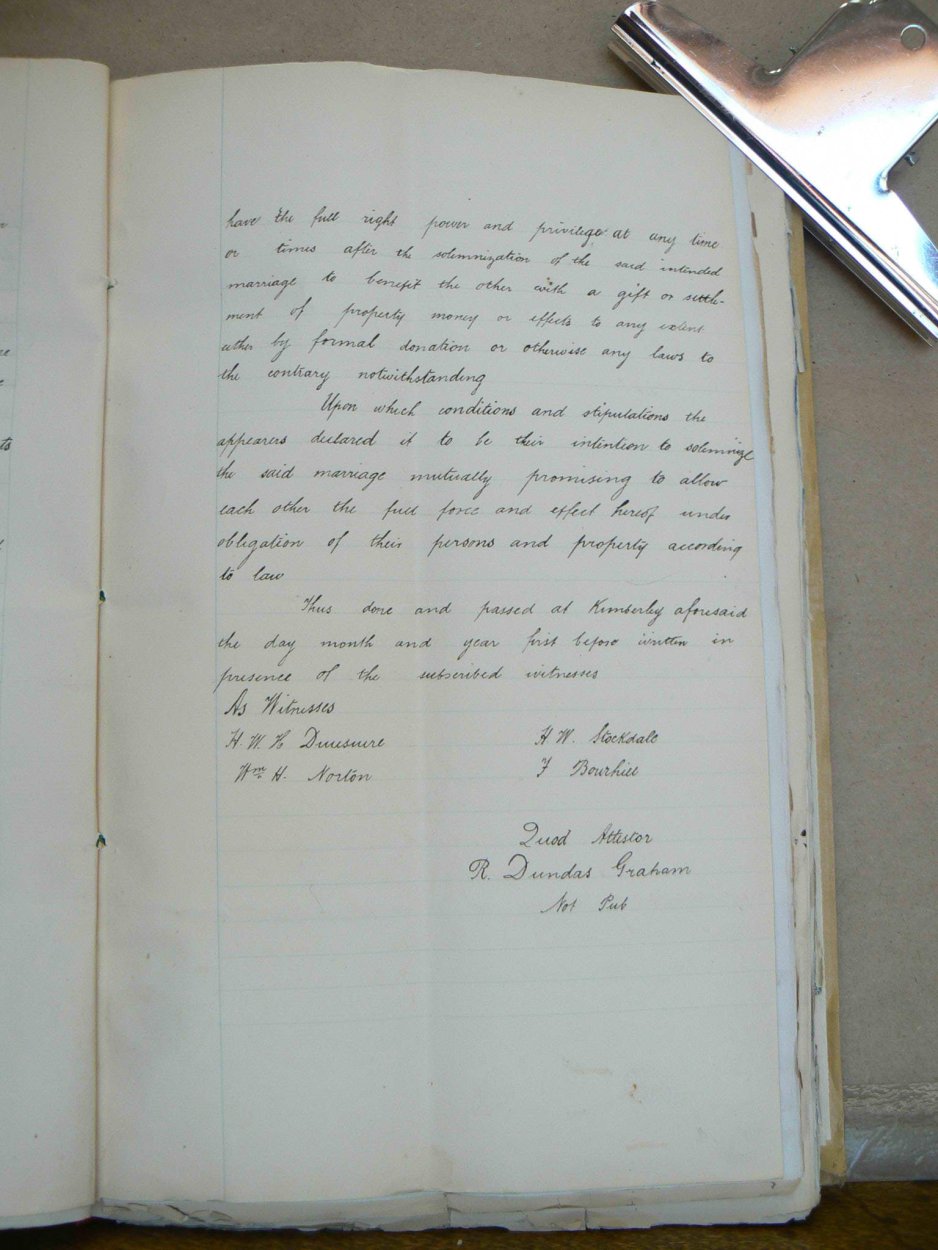 have the full right power and privilege at any time
or times after the solemnization of the said intended
marriage to benefit the other with a gift or settle-
ment of property money or effects to any extent
either by formal donation or otherwise any laws to
the contrary notwithstanding
Upon which conditions and stipulations the
appearers declared it to be their intention to solemnize
the said marriage mutually promising to allow
each other the full force and effect hereof under
obligation of their persons and property according
to law
Thus done and passed at Kimberley aforesaid
the day month and year first before written in
presence of the subscribed witnesses
As Witnesses
H. W. H. H. W. Stockdale
Wm H. Norton F Bourhill
Quod Attestor
R. Dundas Graham
Not Pub